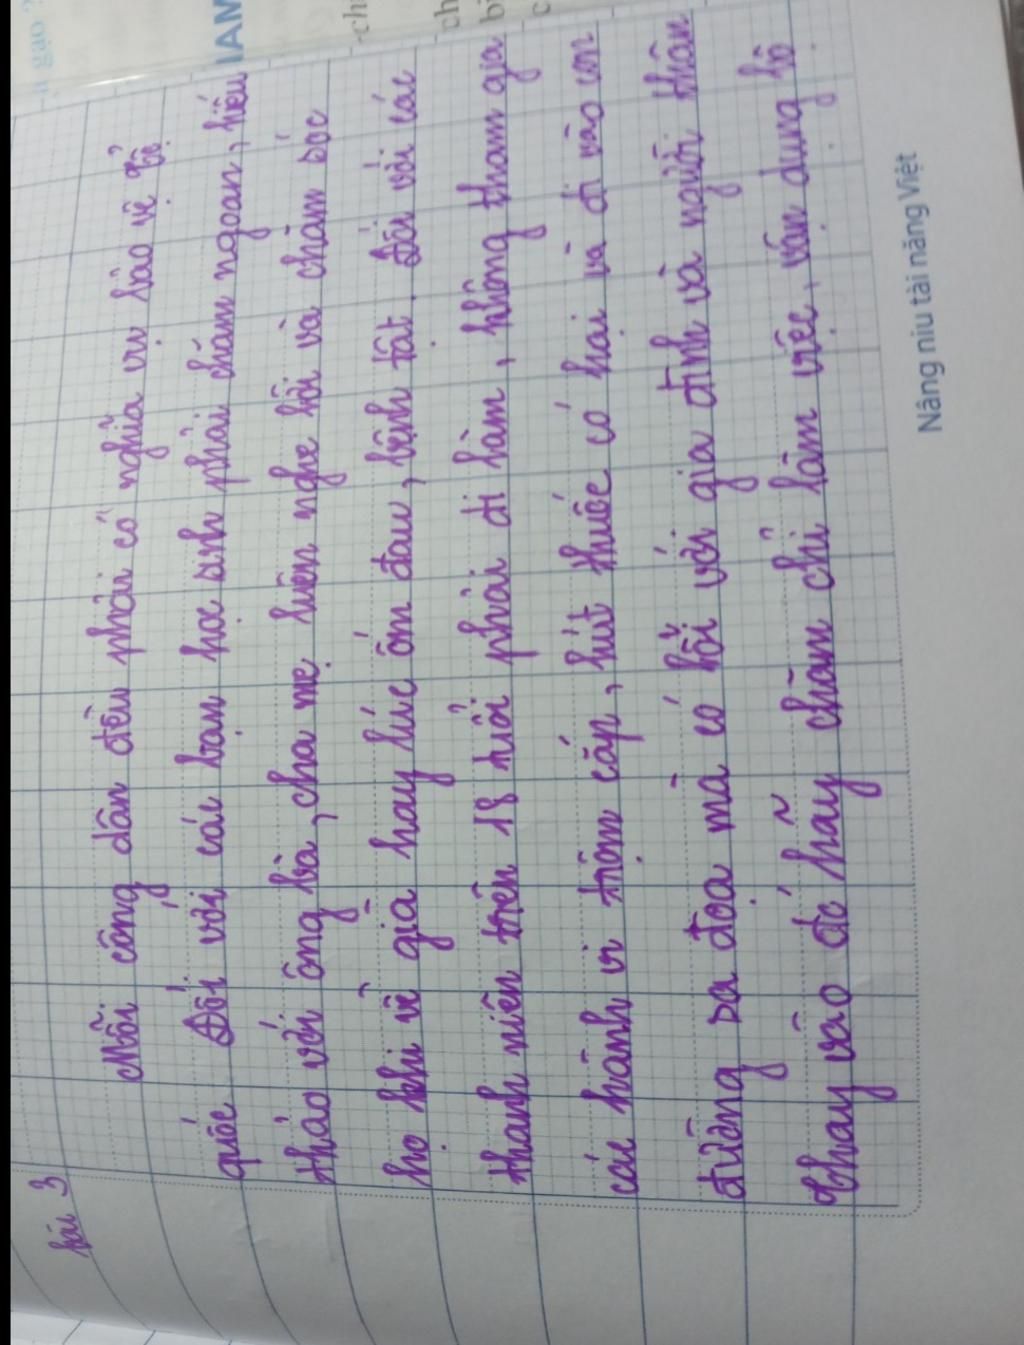 bài 3
Mỗi công dân đều phải có nghĩa vụ bảo vệ tổ
quốc Đối với các bạn học sinh phải chăm ngoan, hiếu
thảo với ông bà, cha mẹ luôn nghe lời và chăm sóc
họ khi về già hay lúc ốm đau, bệnh tật. Đối với các
thanh niên trên 18 tuổi phải đi làm, không tham gia
các hành vi trộm cắp, hút thuốc có hại và đi vào con
đường sa đọa mà có lỗi với gia đình và người thân
Thay vào đó hãy chăm chỉ làm việc, vận dụng
Nâng niu tài năng Việt
gạo ?
IAM